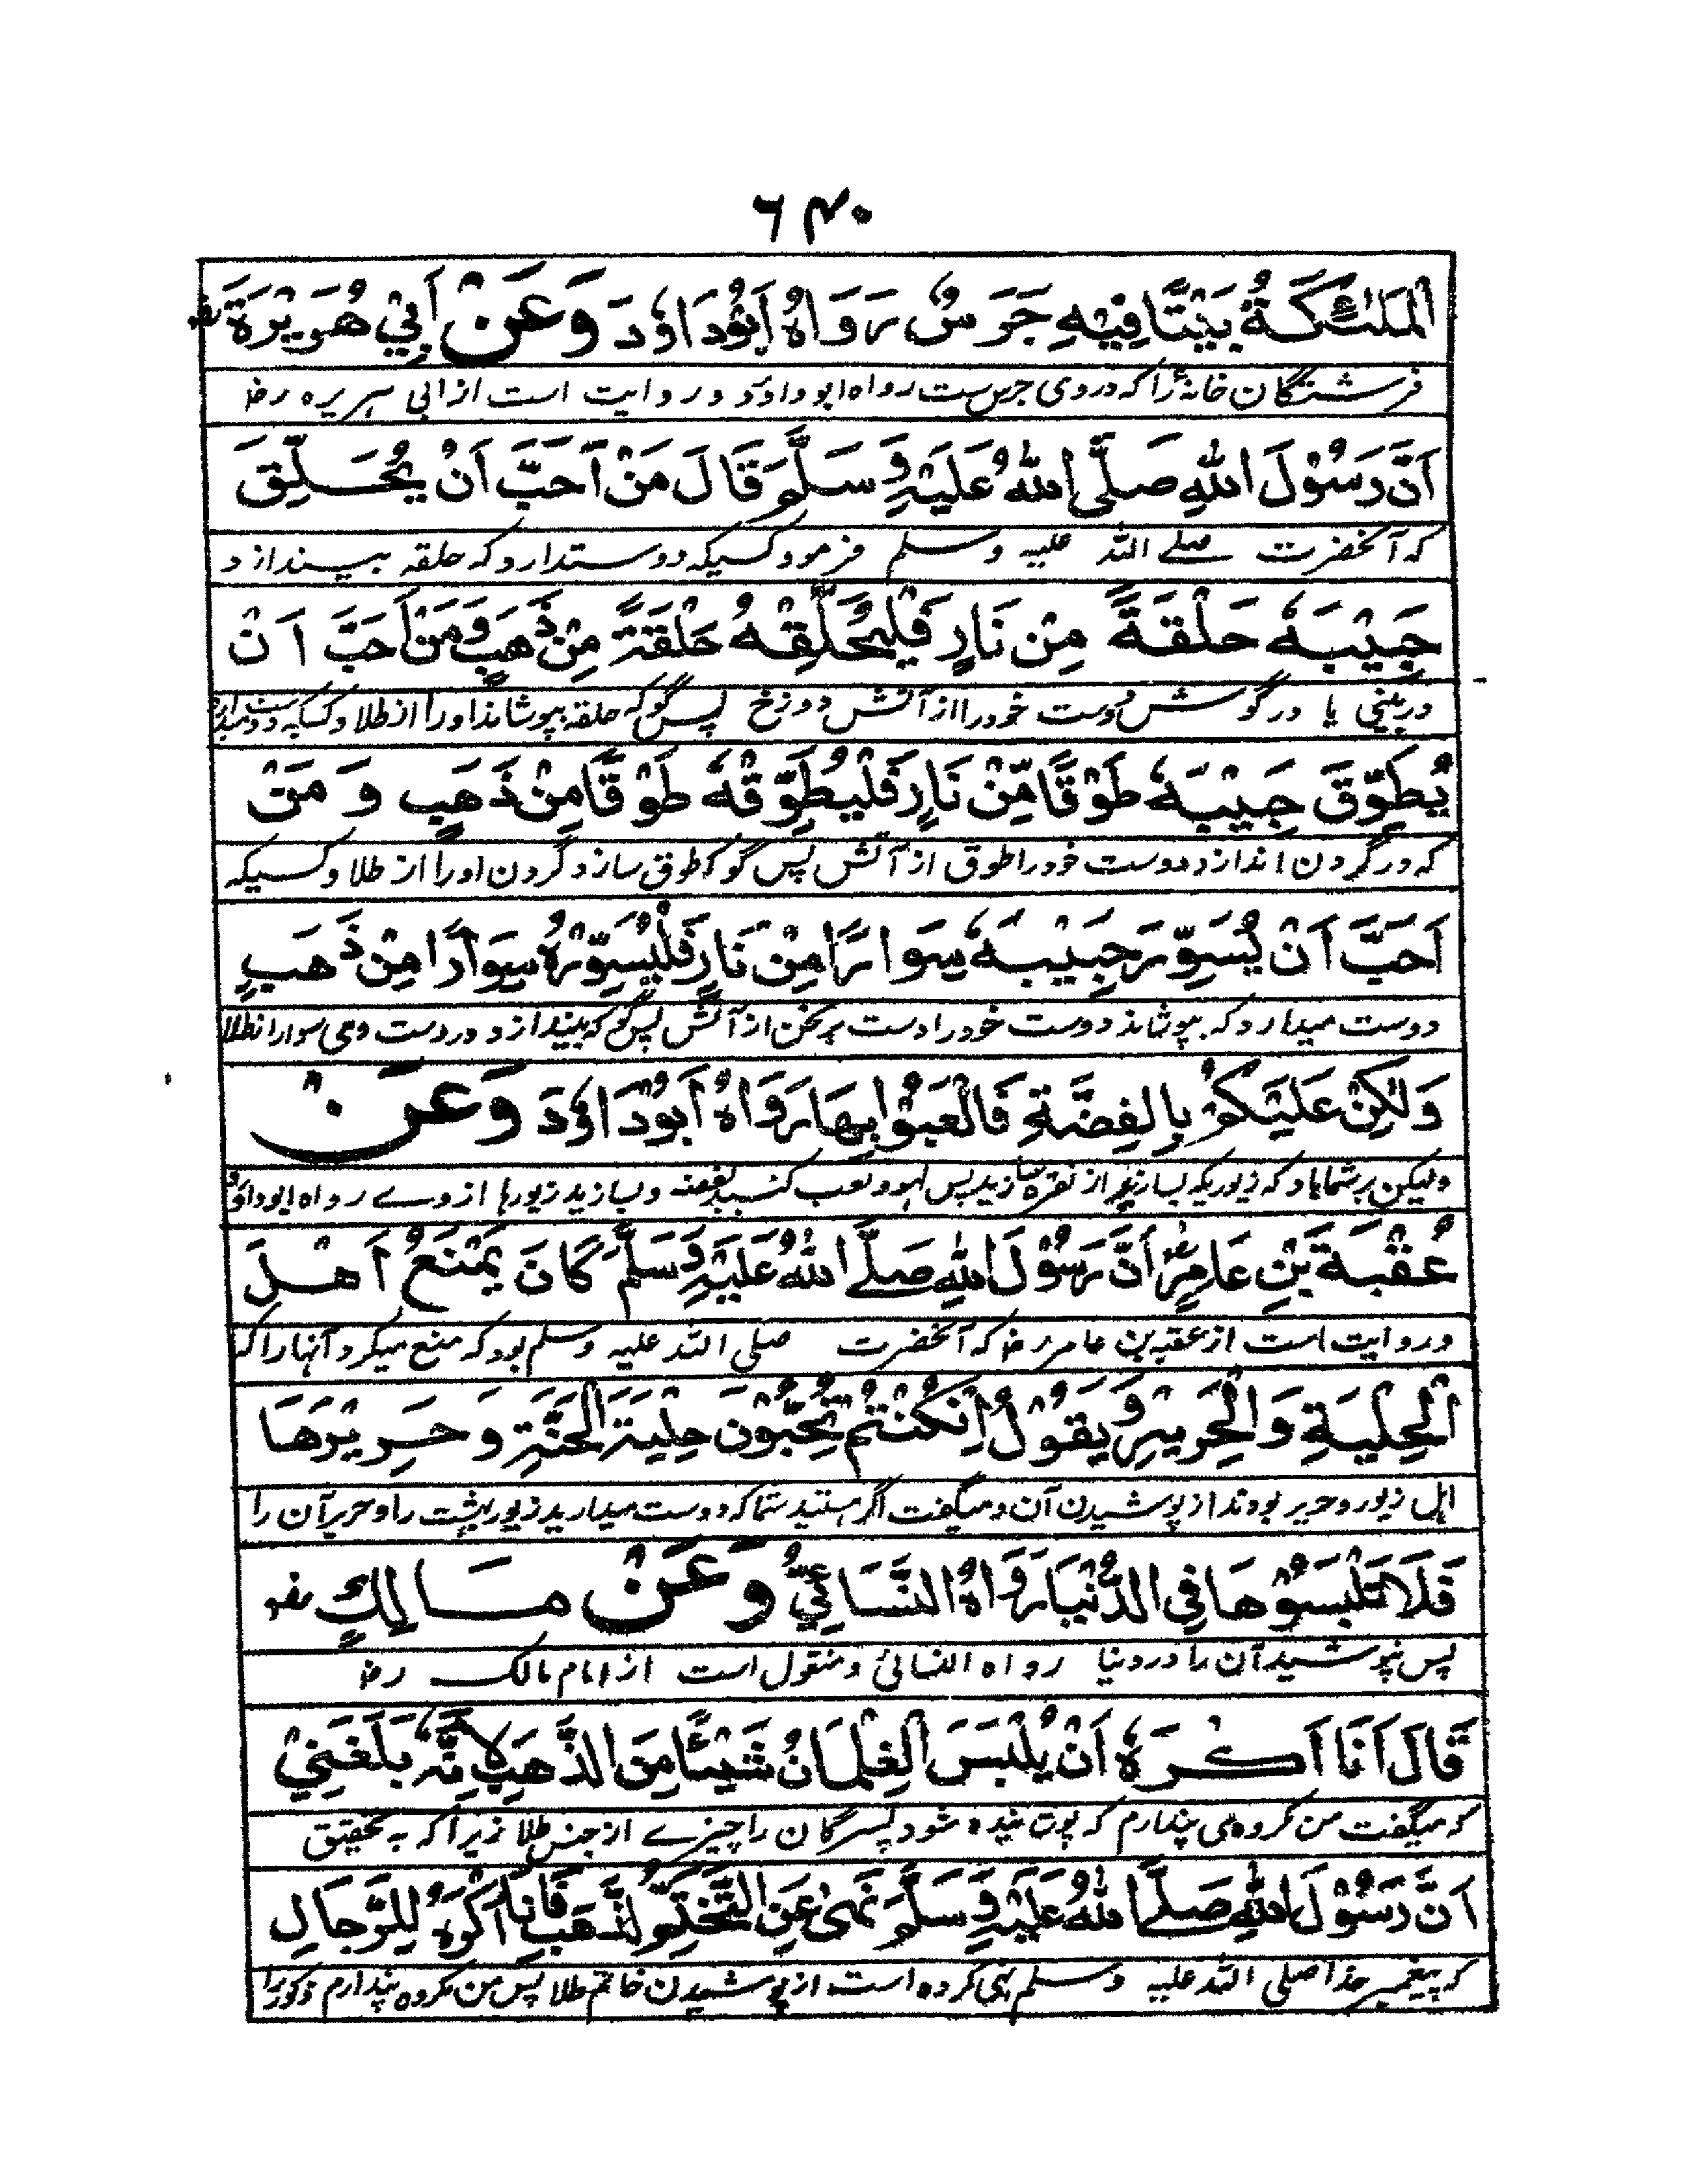 ۶۴۰
الْمَلٰئِكَةُ بَيْتًا فِيْهِ جَرَسٌ رَوَاهُ اَبُوْدَاوٗدَ وَعَنْ اَبِيْ هُرَيْرَةَ
فرشتگان خانهٔ را که در وی جرس ست رواه ابو داود و روایت است از ابی ہریره رضہ
اَنَّ رَسُوْلَ اللّٰهِ صَلَّى اللّٰهُ عَلَيْهِ وَسَلَّمَ قَالَ مَنْ اَحَبَّ اَنْ يُّحَلِّقَ
که آنحضرت صلے اللہ علیه وسلم فرمود کسیکه دوستدارد که حلقه بیندازد
حَبِيْبَهٗ حَلْقَةً مِنْ نَارٍ فَلْيُحَلِّقْهُ حَلْقَةً مِنْ ذَهَبٍ وَمَنْ اَحَبَّ اَنْ
در بینی یا در گوش دوست خود را از آتش دوزخ پس گو که حلقه بپوشاند او را از طلا و کسیکه دوست میدارد
يُطَوِّقَ حَبِيْبَهٗ طَوْقًا مِّنْ نَارٍ فَلْيُطَوِّقْهُ طَوْقًا مِنْ ذَهَبٍ وَ مَنْ
که در گردن اندازد دوست خود را طوق از آتش پس گو که طوق سازد گردن او را از طلا و کسیکه
اَحَبَّ اَنْ يُسَوِّرَ حَبِيْبَهٗ سِوَارًا مِنْ نَارٍ فَلْيُسَوِّرْهُ سِوَارًا مِنْ ذَهَبٍ
دوست میدارد که بپوشاند دوست خود را دست برنجن از آتش پس گو که بیندازد در دست وی سوار از طلا
وَلٰكِنْ عَلَيْكُمْ بِالْفِضَّةِ فَالْعَبُوْا بِهَا رَوَاهُ اَبُوْدَاوٗدَ وَعَنْ
ولیکن بر شما باد که زیوریکه بسازید از نقره سازید پس لہو و لعب کنید بفضه و بسازید زیورہا از وے رواه ابو داود
عُقْبَةَ بْنِ عَامِرٍ اَنَّ رَسُوْلَ اللّٰهِ صَلَّى اللّٰهُ عَلَيْهِ وَسَلَّمَ كَانَ يَمْنَعُ اَهْلَ
و روایت است از عقبه بن عامر رضہ که آنحضرت صلی اللہ علیه وسلم بود که منع میکرد آنہا را که
الْحِلْيَةِ وَالْحَرِيْرِ وَيَقُوْلُ اِنْ كُنْتُمْ تُحِبُّوْنَ حِلْيَةَ الْجَنَّةِ وَ حَرِيْرَهَا
اہل زیور و حریر بودند از پوشیدن آن و میگفت اگر ہستید شما که دوست میدارید زیور بہشت را و حریر آن را
فَلَا تَلْبَسُوْهَا فِي الدُّنْيَا رَوَاهُ النَّسَائِيُّ وَعَنْ مَالِكٍ
پس نپوشید آن را در دنیا رواه النسائی و منقول است از امام مالک رضہ
قَالَ اَنَا اَكْرَهُ اَنْ يُلْبَسَ الْغِلْمَانُ شَيْئًا مِنَ الذَّهَبِ لِاَنَّهٗ بَلَغَنِيْ
که میگفت من مکروه می پندارم که پوشانیده شود پسرگان را چیزے از جنس طلا زیرا که به تحقیق
اَنَّ رَسُوْلَ اللّٰهِ صَلَّى اللّٰهُ عَلَيْهِ وَسَلَّمَ نَهٰى عَنِ التَّخَتُّمِ بِالذَّهَبِ فَاَنَا اَكْرَهُ لِلرِّجَالِ
که پیغمبر خدا صلی اللہ علیه وسلم نہی کرده است از پوشیدن خاتم طلا پس من مکروه پندارم ذکور را